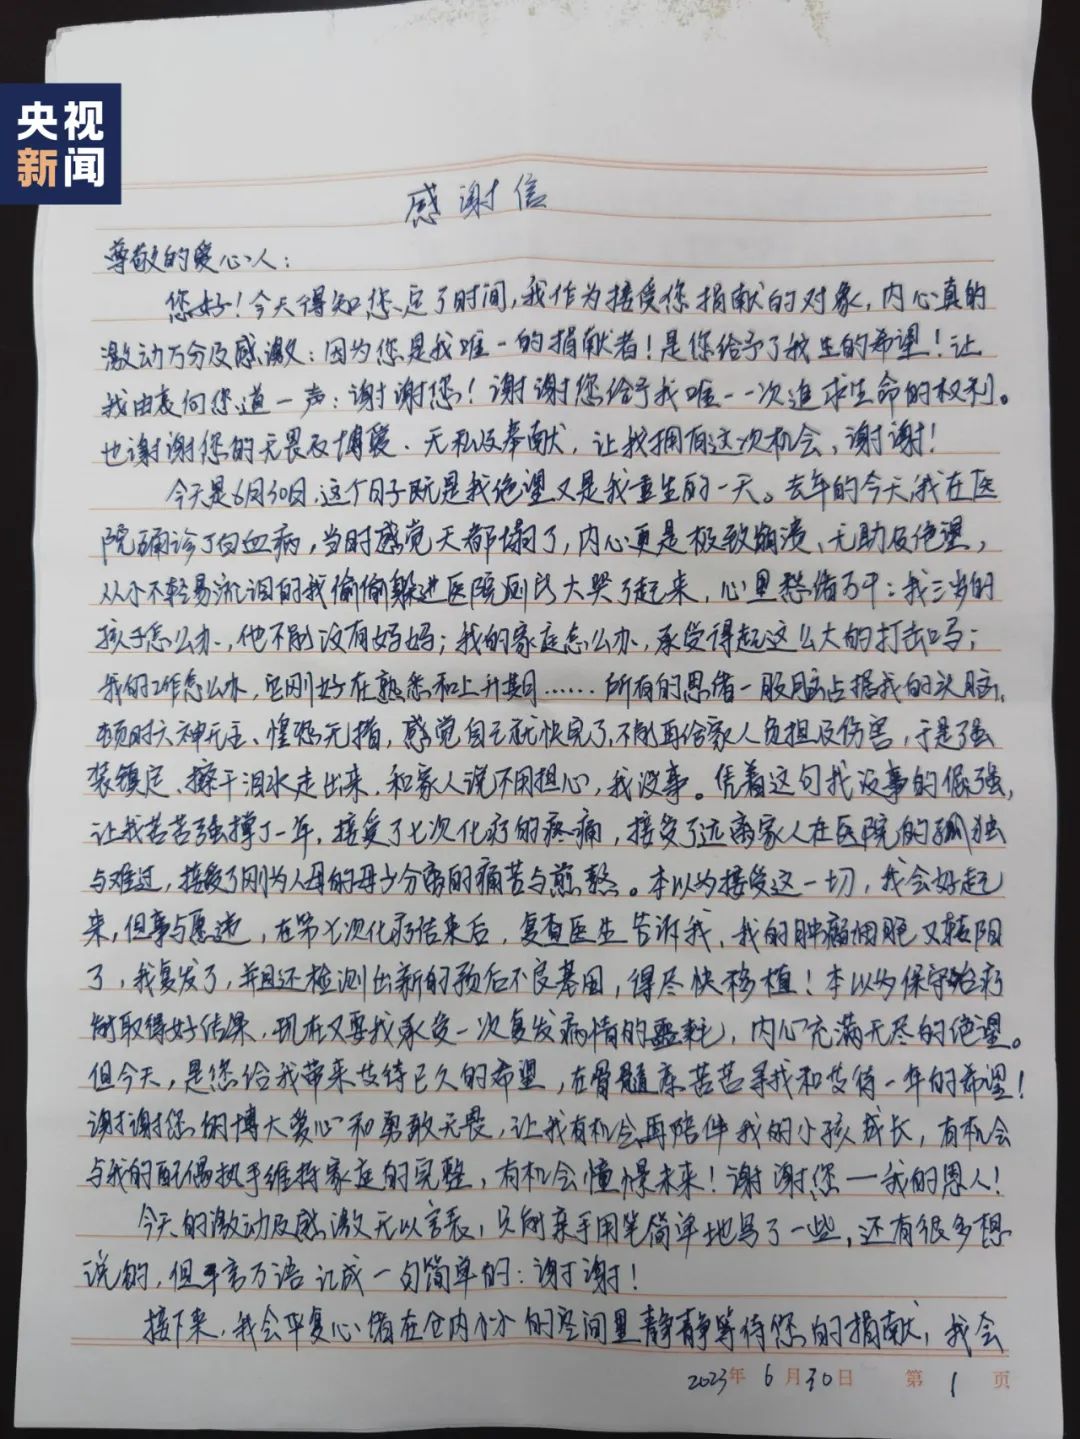 央视
新闻
感谢信
尊敬的爱心人：
您好！今天得知您定了时间，我作为接受您捐献的对象，内心真的
激动万分及感激：因为您是我唯一的捐献者！是您给予了我生的希望！让
我由衷向您道一声：谢谢您！谢谢您给予我唯一一次追求生命的权利。
也谢谢您的无畏及博爱、无私及奉献，让我拥有这次机会，谢谢！
今天是6月30日，这个日子既是我绝望又是我重生的一天。去年的今天，我在医
院确诊了白血病，当时感觉天都塌了，内心更是极致崩溃、无助及绝望，
从小不轻易流泪的我偷偷躲进医院厕所大哭了起来，心里愁绪万千：我三岁的
孩子怎么办，他不能没有妈妈；我的家庭怎么办，承受得起这么大的打击吗；
我的工作怎么办，它刚好在熟悉和上升期……所有的思绪一股脑占据我的头脑，
顿时六神无主、惶恐无措，感觉自己就快完了，不能再给家人负担及伤害，于是强
装镇定、擦干泪水走出来，和家人说不用担心，我没事。凭着这句我没事的倔强，
让我苦苦强撑了一年，接受了七次化疗的疼痛，接受了远离家人在医院的孤独
与难过，接受了刚为人母的母子分离的痛苦与煎熬。本以为接受这一切，我会好起
来，但事与愿违，在第七次化疗结束后，复查医生告诉我，我的肿瘤细胞又转阳
了，我复发了，并且还检测出新的预后不良基因，得尽快移植！本以为保守治疗
能取得好结果，现在又要我承受一次复发病情的噩耗，内心充满无尽的绝望。
但今天，是您给我带来等待已久的希望，在骨髓库苦苦寻找和等待一年的希望！
谢谢您的博大爱心和勇敢无畏，让我有机会再陪伴我的小孩成长，有机会
与我的配偶执手维持家庭的完整，有机会憧憬未来！谢谢您—我的恩人！
今天的激动及感激无以言表，只能亲手用笔简单地写了一些，还有很多想
说的，但千言万语汇成一句简单的：谢谢！
接下来，我会平复心绪在仓内小小的空间里静静等待您的捐献，我会
2023年 6月30日 第 1 页